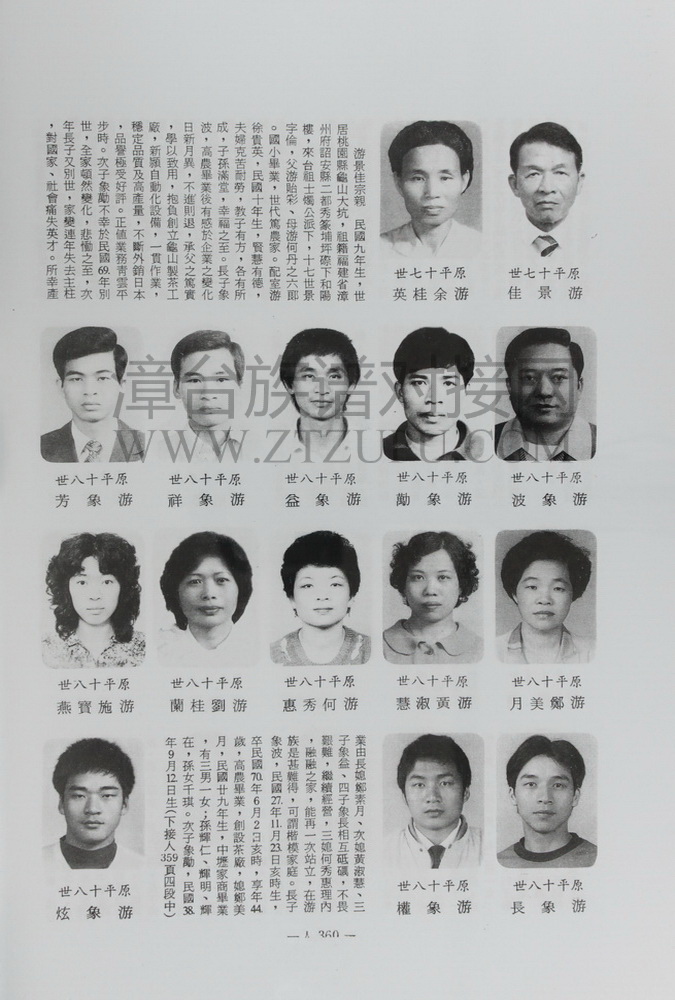 游景佳宗親　民國九年生，世
居桃園縣龜山大坑，祖籍福建省漳
州府詔安縣二都秀篆埔坪磜下和陽
樓，來台祖士燭公派下，十七世景
字倫，父游貽彩、母游何丹之六郎
。國小畢業，世代篤農家。配室游
徐貴英，民國十年生，賢慧有德，
夫婦克苦耐勞，教子有方，各有所
成，子孫滿堂，幸福之至。長子象
波，高農畢業後有感於企業之變化
日新月異，不進則退，承父之篤實
，學以致用，抱負創立龜山製茶工
廠，新穎自動化設備，一貫作業，
穩定品質及高產量，不斷外銷日本
，品譽極受好評。正值業務靑雲平
步時。次子象勛不幸於民國69.年別
世，全家頓然變化，悲慟之至，次
年長子又別世，家變連年失去主柱
，對國家、社會痛失英才。所幸產
世七十平原
佳景游
世七十平原
英桂余游
世八十平原
波象游
世八十平原
勛象游
世八十平原
益象游
世八十平原
祥象游
世八十平原
芳象游
漳台族谱对接网
WWW.ZTZUPU.COM
世八十平原
月美鄭游
世八十平原
慧淑黃游
世八十平原
惠秀何游
世八十平原
蘭桂劉游
世八十平原
燕寶施游
世八十平原
長象游
世八十平原
權象游
業由長媳鄭素月、次媳黃淑慧、三
子象益、四子象長相互砥礪，不畏
艱難，繼續經營，三媳何秀惠理內
，融融之家，能再一次站立，在游
族是甚難得，可謂楷模家庭。長子
象波，民國27.年11.月23.日亥時生，
卒民國70.年6月2日亥時，享年44.
歲，高農畢業，創設茶廠，媳鄭美
月，民國廿九年生，中壢家商畢業
，有三男一女；孫輝仁、輝明、輝
在，孫女千琪。次子象勛，民國38.
年9月12.日生(下接人359頁四段中)
世八十平原
炫象游
— 人 360 —